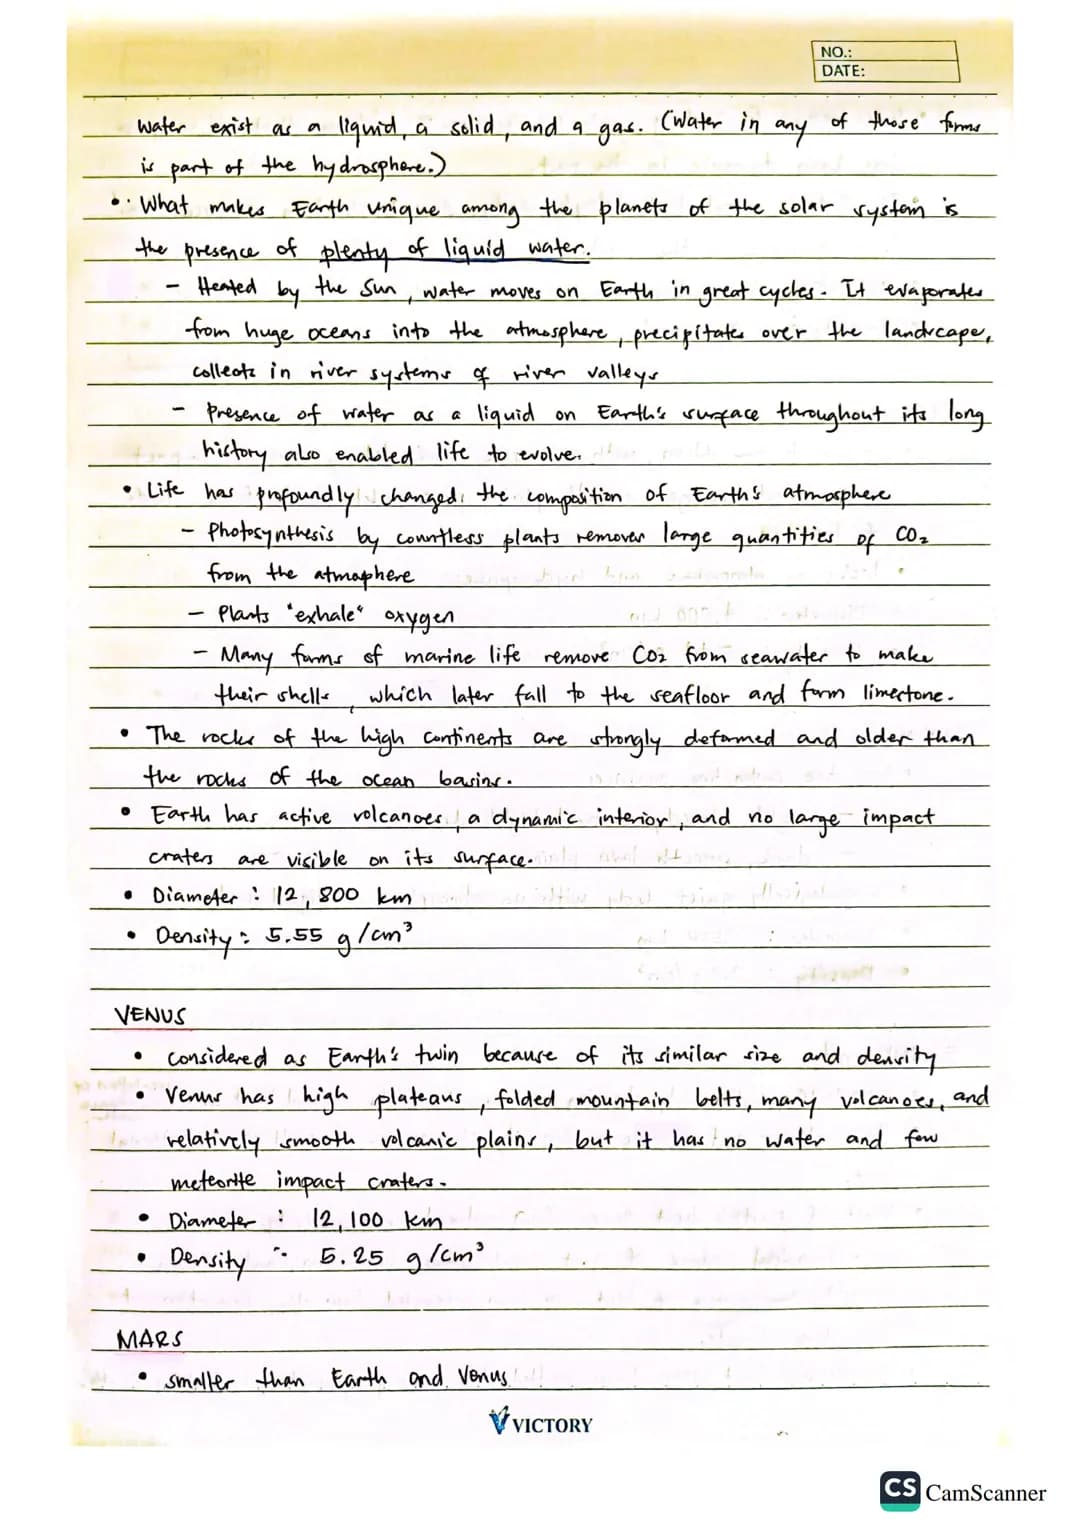 NO.:
DATE:
Water exist as a liquid, a solid, and a gas. (Water in any of those forms
is part of the hydrosphere.)
• What makes Earth unique among the planets of the solar system is
the presence of plenty of liquid water.
- Heated by the Sun, water moves on Earth in great cycles. It evaporates
from huge oceans into the atmosphere, precipitates over the landscape,
collects in river systems of river valleys
- Presence of water as a liquid on Earth's surface throughout its long
history also enabled life to evolve.
• Life has profoundly changed the composition of Earth's atmosphere
- Photosynthesis by countless plants removes large quantities of CO₂
from the atmosphere
- Plants "exhale" oxygen
- Many forms of marine life remove CO₂ from seawater to make
their shells, which later fall to the seafloor and form limestone.
• The rocks of the high continents are strongly deformed and older than
the rocks of the ocean basins.
• Earth has active volcanoes, a dynamic interior, and no large impact
craters are visible on its surface.
• Diameter : 12,800 km
• Density : 5.55 g/cm³
VENUS
• considered as Earth's twin because of its similar size and density
• Venus has high plateaus, folded mountain belts, many volcanoes, and
relatively smooth volcanic plains, but it has no water and few
meteorite impact craters.
• Diameter : 12,100 km
• Density : 5.25 g/cm³
MARS
• smaller than Earth and Venus
VICTORY
CS CamScanner